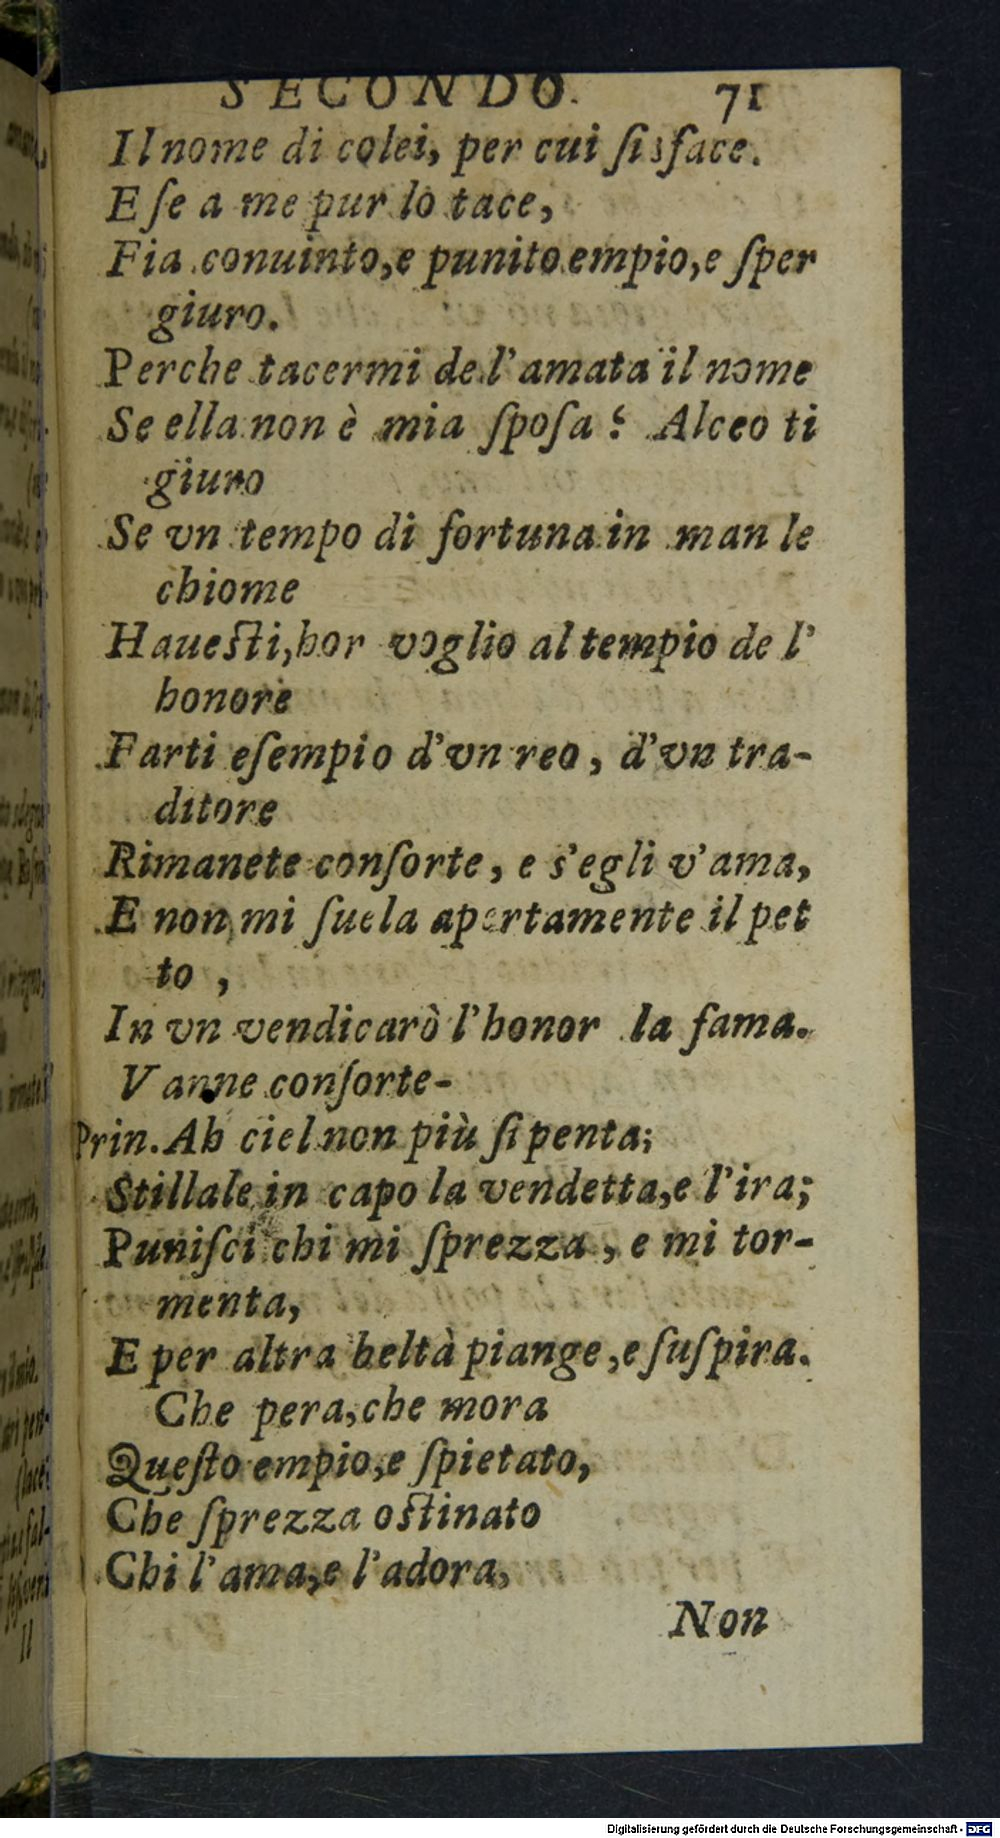 SECONDO. 71
Il nome di colei, per cui ſi sface.
E ſe a me pur lo tace,
Fia conuinto, e punito empio, e ſper
giuro.
Perche tacermi de l'amata il nome
Se ella non è mia ſpoſa? Alceo ti
giuro
Se vn tempo di fortuna in man le
chiome
Haueſti, hor voglio al tempio de l'
honore
Farti eſempio d'vn reo, d'vn tra-
ditore
Rimanete conſorte, e s'egli v'ama,
E non mi ſuela apertamente il pet
to,
In vn vendicarò l'honor la fama.
Vanne conſorte-
Prin. Ah ciel non più ſi penta;
Stillale in capo la vendetta, e l'ira;
Puniſci chi mi ſprezza, e mi tor-
menta,
E per altra beltà piange, e ſuſpira.
Che pera, che mora
Queſto empio, e ſpietato,
Che ſprezza oſtinato
Chi l'ama, e l'adora,
Non
Digitalisierung gefördert durch die Deutsche Forschungsgemeinschaft - DFG